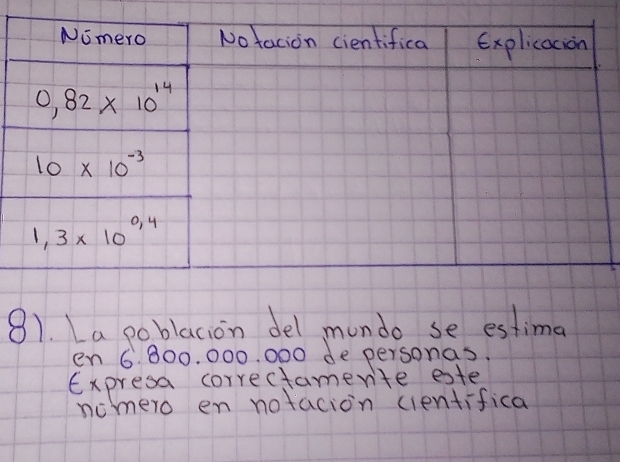 Número Notación cientifica Explicación
0,82 x 10¹⁴
10 x 10⁻³
1,3 x 10⁰˒⁴
81. La población del mundo se estima
en 6.800.000.000 de personas.
Expresa correctamente este
número en notación científica